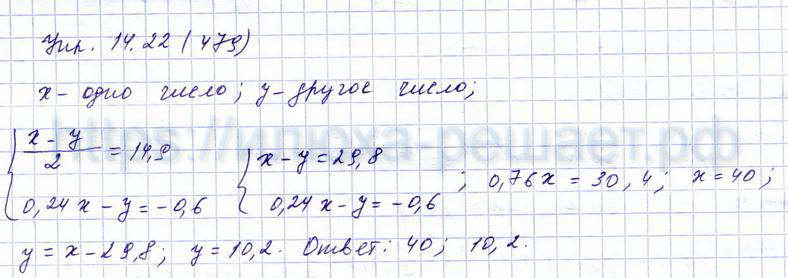 Упр. 14.22 (479)
x - одно число; y - другое число;
{ (x - y)/2 = 14,9 { x - y = 29,8
{ 0,24x - y = -0,6 { 0,24x - y = -0,6 ; 0,76x = 30,4; x = 40;
y = x - 29,8; y = 10,2. Ответ: 40; 10,2.
https://илюха-решает.рф